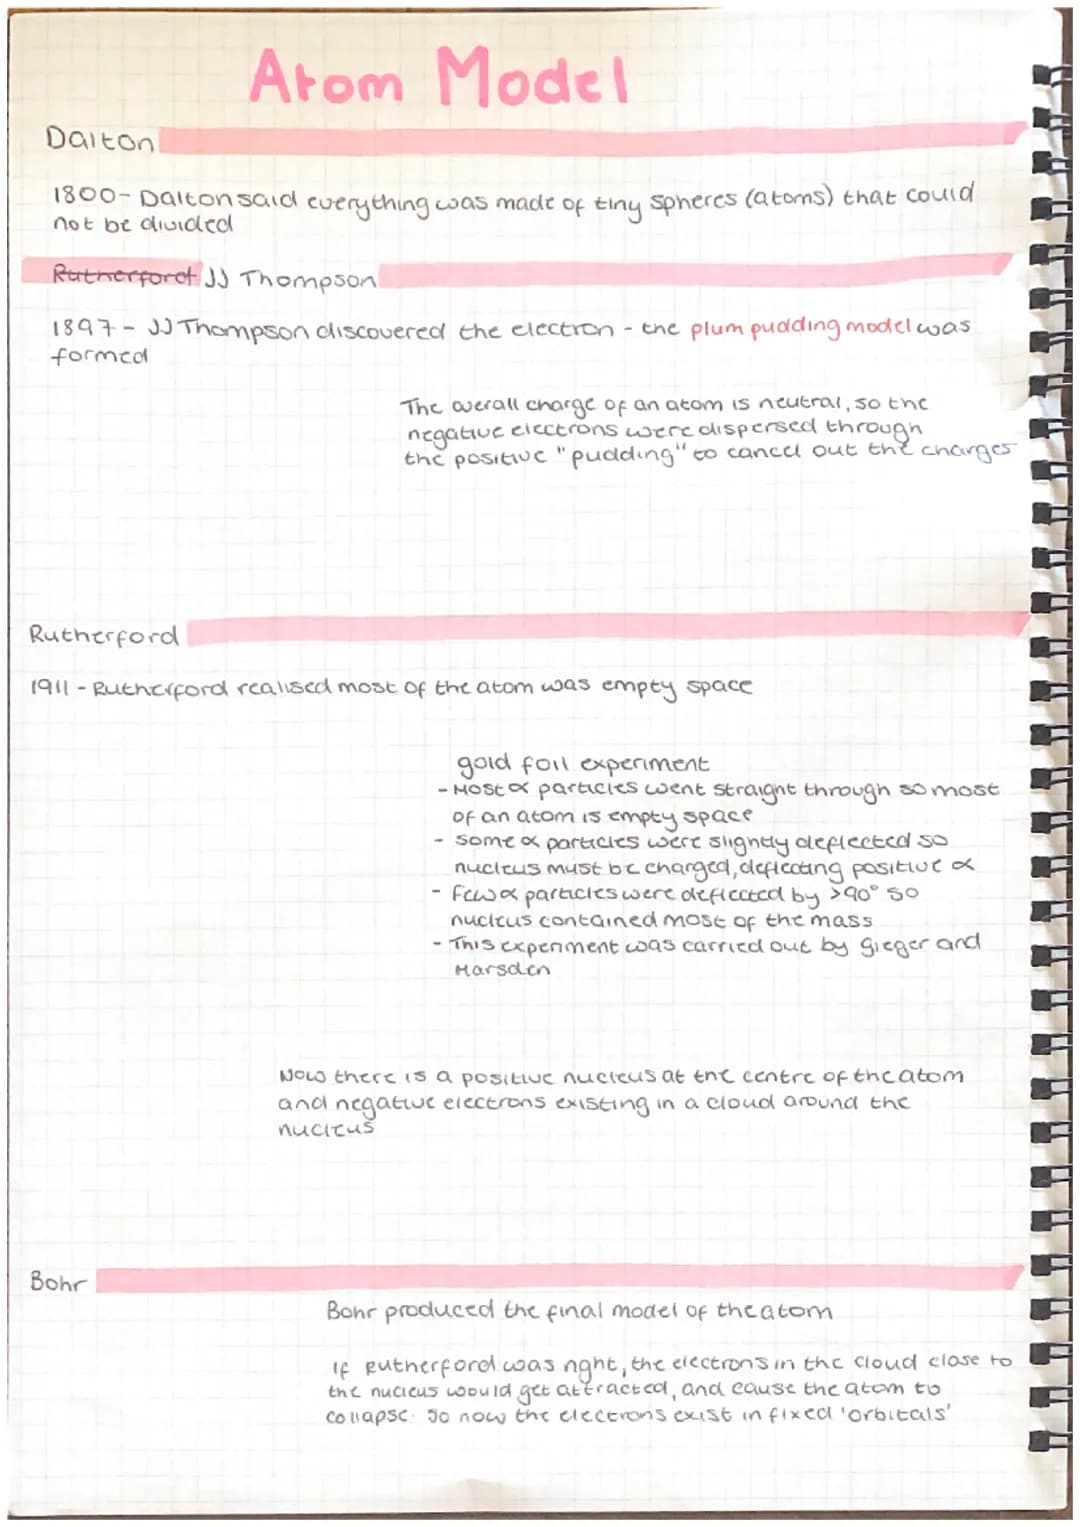 Atom Model
Dalton
1800- Dalton said everything was made of tiny spheres (atoms) that could
not be divided
Rutherford JJ Thompson
1897 - JJ Thompson discovered the electron - the plum pudding model was
formed
The overall charge of an atom is neutral, so the
negative electrons were dispersed through
the positive "pudding" to cancel out the charges
Rutherford
1911 - Rutherford realised most of the atom was empty space
gold foil experiment
- Most α particles went straight through so most
of an atom is empty space
- some α particles were slightly deflected so
nucleus must be charged, deflecting positive α
- Few α particles were deflected by >90° so
nucleus contained most of the mass
- This experiment was carried out by gieger and
Marsden
Now there is a positive nucleus at the centre of the atom
and negative electrons existing in a cloud around the
nucleus
Bohr
Bohr produced the final model of the atom
If Rutherford was right, the electrons in the cloud close to
the nucleus would get attracted, and cause the atom to
collapse. So now the electrons exist in fixed 'orbitals'